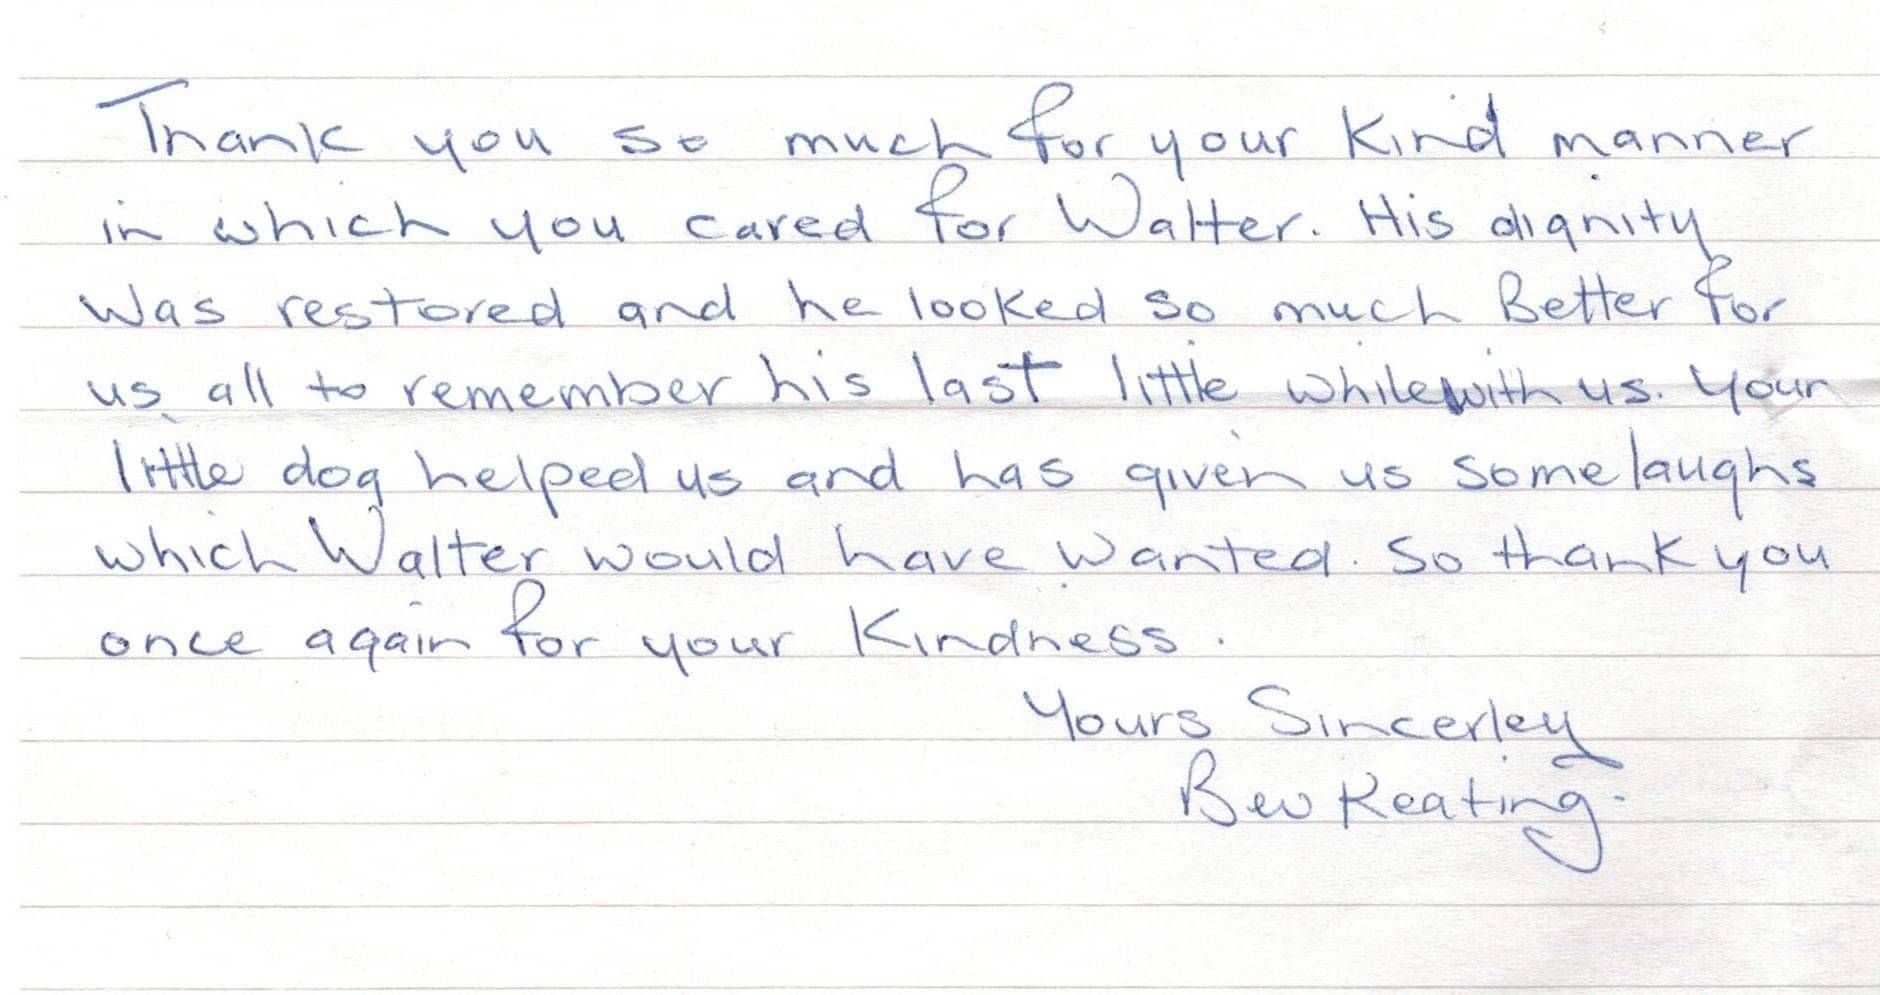 Thank you so much for your kind manner
in which you cared for Walter. His dignity
was restored and he looked so much Better for
us all to remember his last little while with us. Your
little dog helped us and has given us some laughs
which Walter would have wanted. So thank you
once again for your Kindness.
Yours Sincerley
Bev Keating.